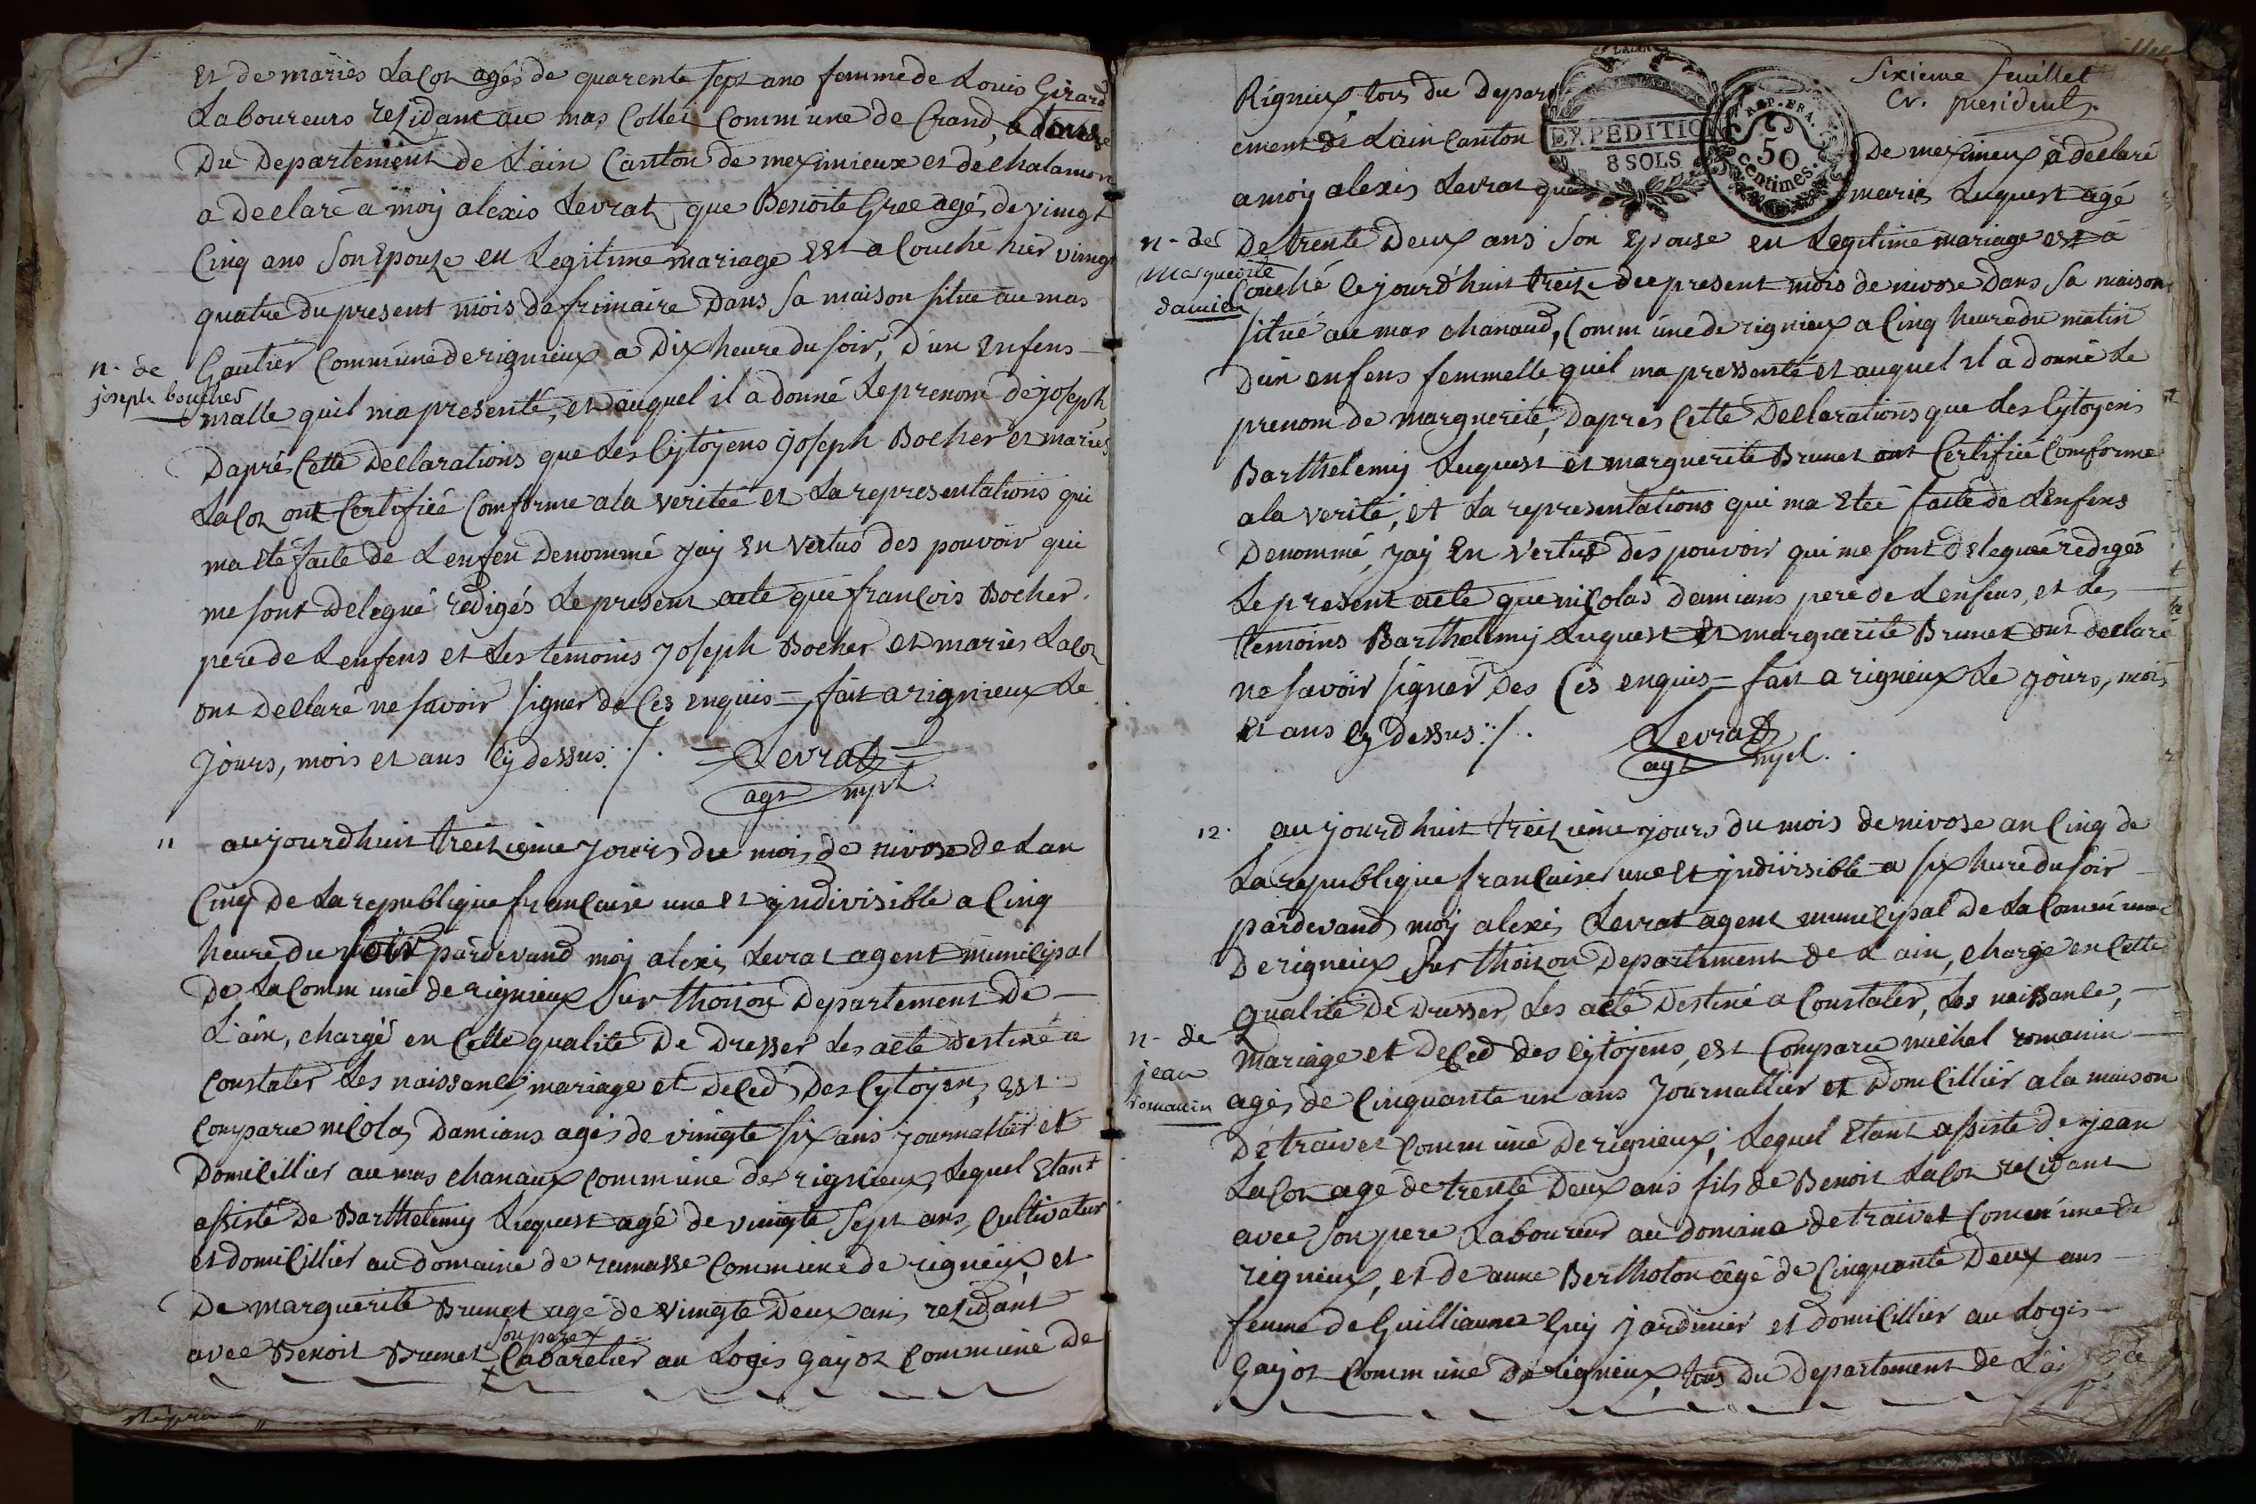 Et de mariés Lacon agés de quarente sept ans femme de Louis Girard
Laboureurs residant au mas Collet Commune de Crand,
Du Departement de L'ain Canton de meximieux et de chalamon
a declaré a moÿ alexis Levrat, que Benoite Gree agés de vimgt
Cinq ans son Epouse en Legitime mariage Est acouché hier vimgt
quatre du present mois de frimaire Dans sa maison situe au mas
Gautier Commune de rignieux a Dix heure du soir, D'un Enfens
n. de
joseph boucher
malle quil ma presenté, et auquel il a donné Le prenom de joseph
Dapré Cette Declarations que Les Cytoyens joseph Bocher et mariés
Lacon ont Certifiée Comforme ala veritée et La representations qui
ma Eté faite de Lenfen Denommé jaÿ En vertus des pouvoir qui
me sont Delegué redigés Le present acte que francois Bocher.
pere de Lenfens et Les temoins joseph Bocher et mariés Lacon
ont Declaré ne savoir signer de Ces enquis = fait a rignieux Le
jours, mois et ans Cy dessus ./. = Levrat =
agt mpl.
11 aujourdhuit treizieme jours du mois de nivose de Lan
Cinq De La republique francaise une et jndivisible a Cinq
heure du soir pardevand moÿ alexis Levrat agent municipal
De La Commune de rignieux sur thoison Departement De
L'ain, chargé en Cette qualite De Dresser Les acte destiné a
Constater Les naissance, mariage et Deced Des Cytoyen, Est
Comparu nicolas Damians agés de vimgte six ans journallier et
Domicillier au mas chanaux commune de rignieux, Lequel Etant
assisté de Barthelemy Luquest agé de vimgte sept ans, Cultivateur
et domicillier au domaine de ramasse Commune de rignieux, et
De marguerite Brunet agé de vimgte Deux ans residant
son pere x
avec Benoit Brunet x Cabaretier au Logis gayot Commune De
Sixieme feuillet
Cr. president.
EXPEDITION
8 SOLS
REP. FRA.
50
Centimes.
Rignieux, tous du Depar
tement de Lain Canton De meximieux à declaré
a moÿ alexis Levrat que marie Luquest agé
n. de
marguerite
damian
De trente Deux ans son Epouse en Legitime mariage est a
Couché Cejourdhuit treize du present mois de nivose Dans sa maison
situé au mas chanaud, Commune de rignieux a Cinq heure du matin
Dún enfens femmelle quil ma pressenté et auquel il a donné Le
prenom de marguerite, Dapres Cette Declarations que Les Cytoyens
Barthelemy Luquest et marguerite Brunet ont Certifiée Comforme
ala verite, et La representations qui ma Etée faite de Lenfens
Denommé, jaÿ En vertus des pouvoir qui me sont Deleguée redigés
Le present acte que nicolas damians pere de Lenfens, et Les
temoins Barthelemy Luquest et marguerite Brunet ont declaré
ne savoir signer des Ces enquis = fait a rignieux Le jours, mois
et ans Cy dessus ./. Levrat
agt mpl.
12. aujourdhuit treizieme jours du mois de nivose an Cinq de
La republique francaise une et jndivisible a six heure du soir
pardevand moÿ alexis Levrat agent municipal De La Commune
De rignieux sur thoison Departement de L'ain, chargé en Cette
qualité De Dresser Les acte Destiné a Constater, Les naissance,
n. de
jean
romanin
mariage et Deced des Cytoyens, est Comparu michel romanin
agés de Cinquante un ans Journallier et Domicillier a la maison
De traivet Commune de rignieux, Lequel Etant assisté de jean
Lacon agé de trente Deux ans fils de Benoit Lacon residant
avec son pere Laboureur au domaine de traivet Commune de
rignieux, et de anne Bertholon âgé de Cinquante Deux ans
femme de Guilliaume Guy jardinier et domicillier au Logis
Gayot Commune De rignieux, tous Du Departement de L'ai